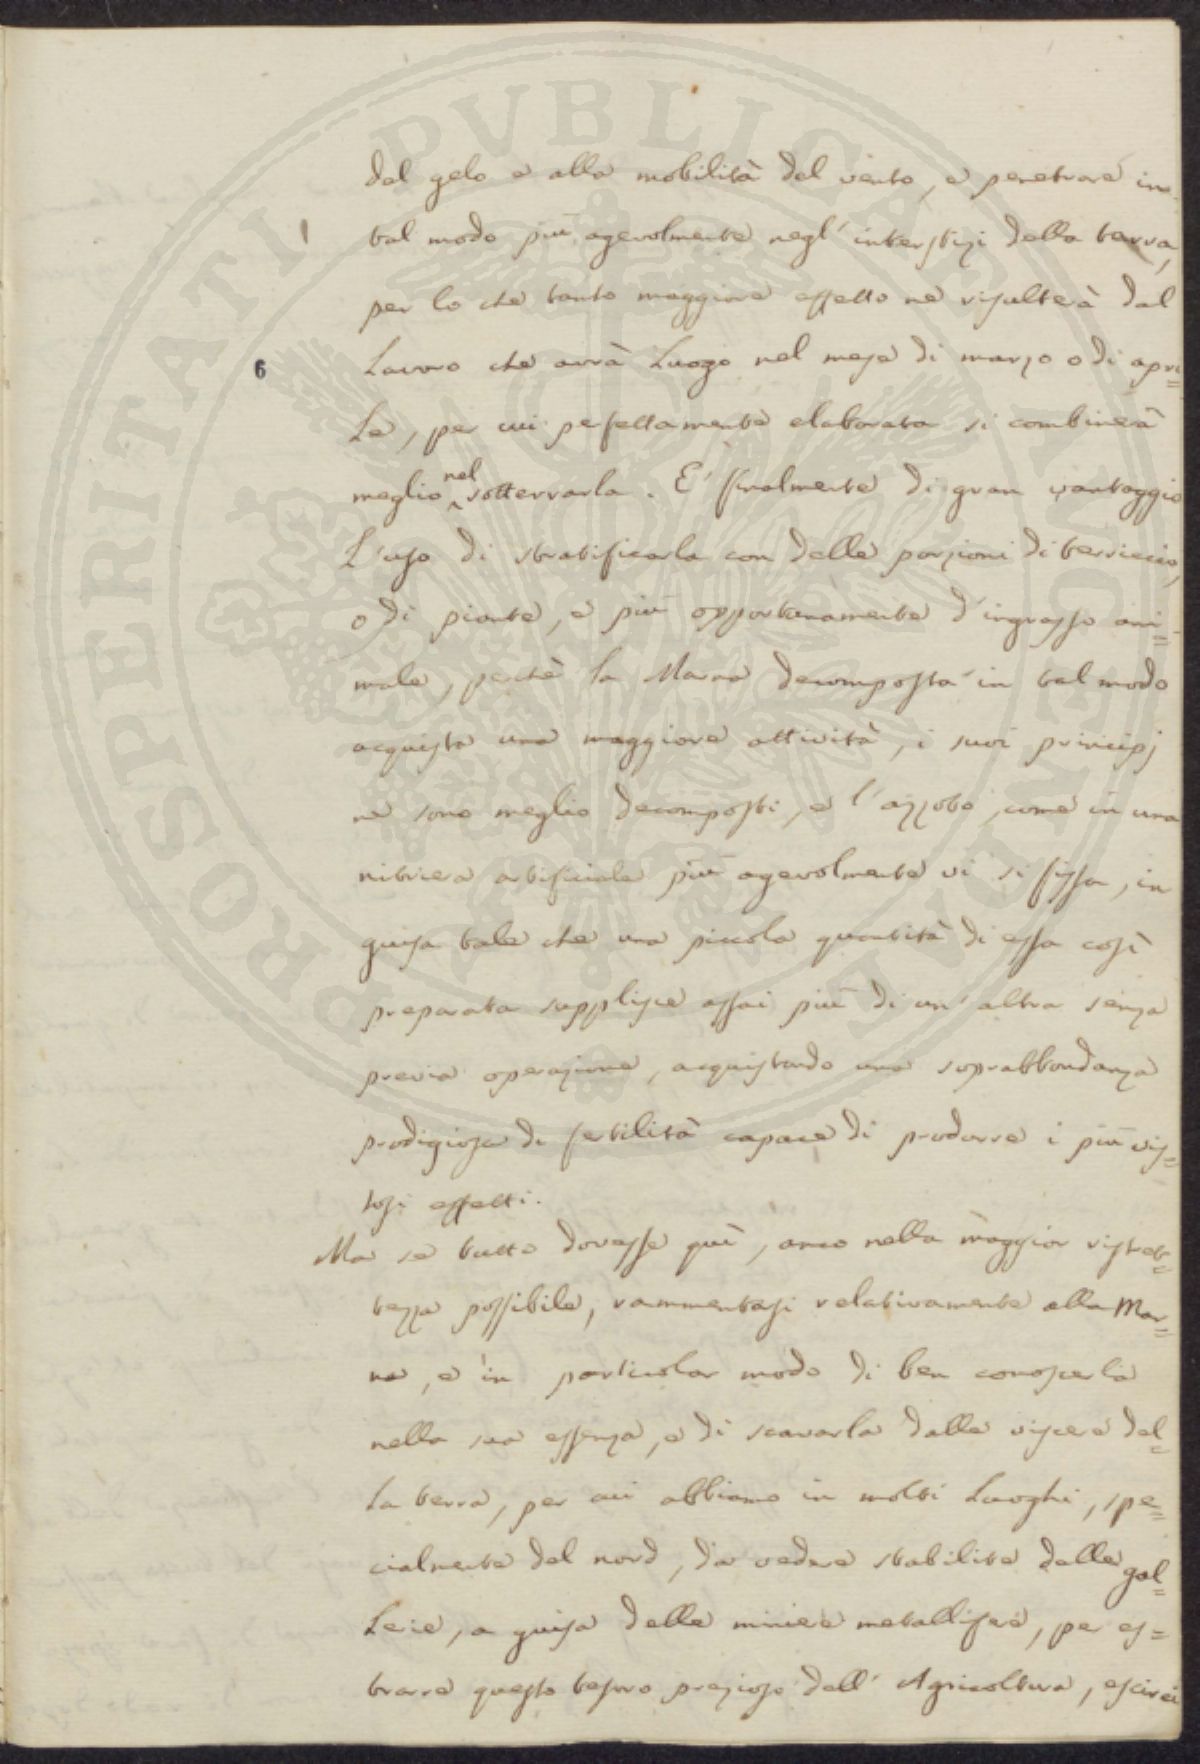 dal gelo e alla mobilità del vento, e penetrare in
tal modo più agevolmente negl'interstizj della terra,
per lo che tanto maggiore effetto ne risulterà dal
6
Lavoro che avrà Luogo nel mese di marzo o di apri=
Le, per cui perfettamente elaborata si combinerà
meglio nel sotterrarla. E' finalmente di gran vantaggio
L'uso di stratificarla con delle porzioni di terriccio,
o di piante, e più opportunamente d'ingrasso ani=
male, perchè la Marna decomposta in tal modo
acquista una maggiore attività, i suoi principj
ne sono meglio decomposti, e l'azzoto, come in una
nitriera artificiale più agevolmente vi si fissa, in
guisa tale che una piccola quantità di essa così
preparata supplisce assai più di un'altra senza
previa operazione, acquistando una soprabbondanza
prodigiosa di fertilità capace di produrre i più vis=
tosi effetti.
Ma se tutto dovesse quì, anco nella maggior ristret=
tezza possibile, rammentasi relativamente alla Mar=
na, e in particolar modo di ben conoscerla
nella sua essenza, e di scavarla dalle viscere del=
La terra, per cui abbiamo in molti Luoghi, spe=
cialmente del nord, da vedere stabilite delle gal=
Lerie, a guisa delle miniere metallifere, per es=
trarre questo tesoro prezioso dell'Agricoltura, escirei
PROSPERITATI PVBLICAE